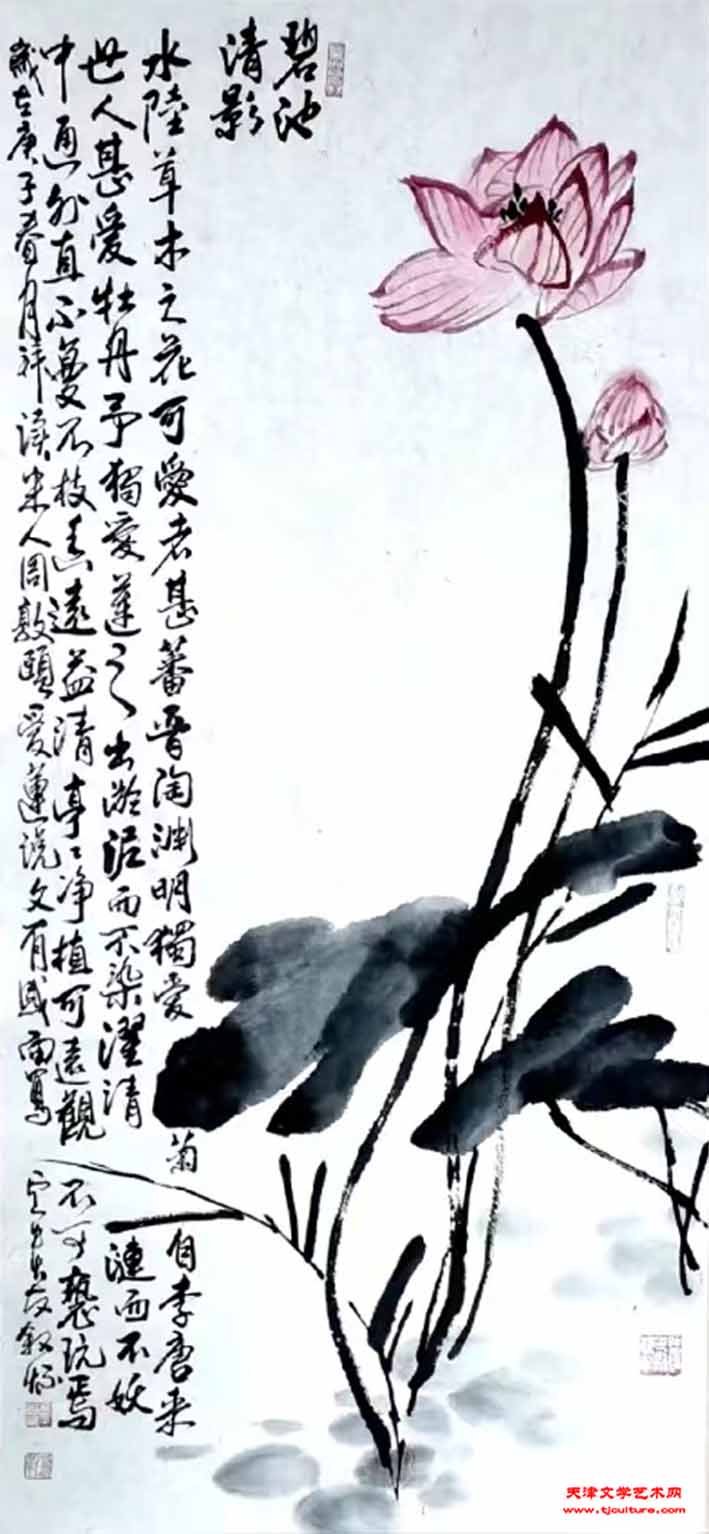 碧池
清影
水陸草木之花可愛者甚蕃晉陶渊明獨愛菊自李唐来
世人甚愛牡丹予獨愛蓮之出淤泥而不染濯清漣而不妖
中通外直不蔓不枝香遠益清亭亭净植可遠觀不可褻玩焉
歲在庚子春月拜读宋人周敦頤爱蓮说文有感而寫
天津文学艺术网
www.tjculture.com